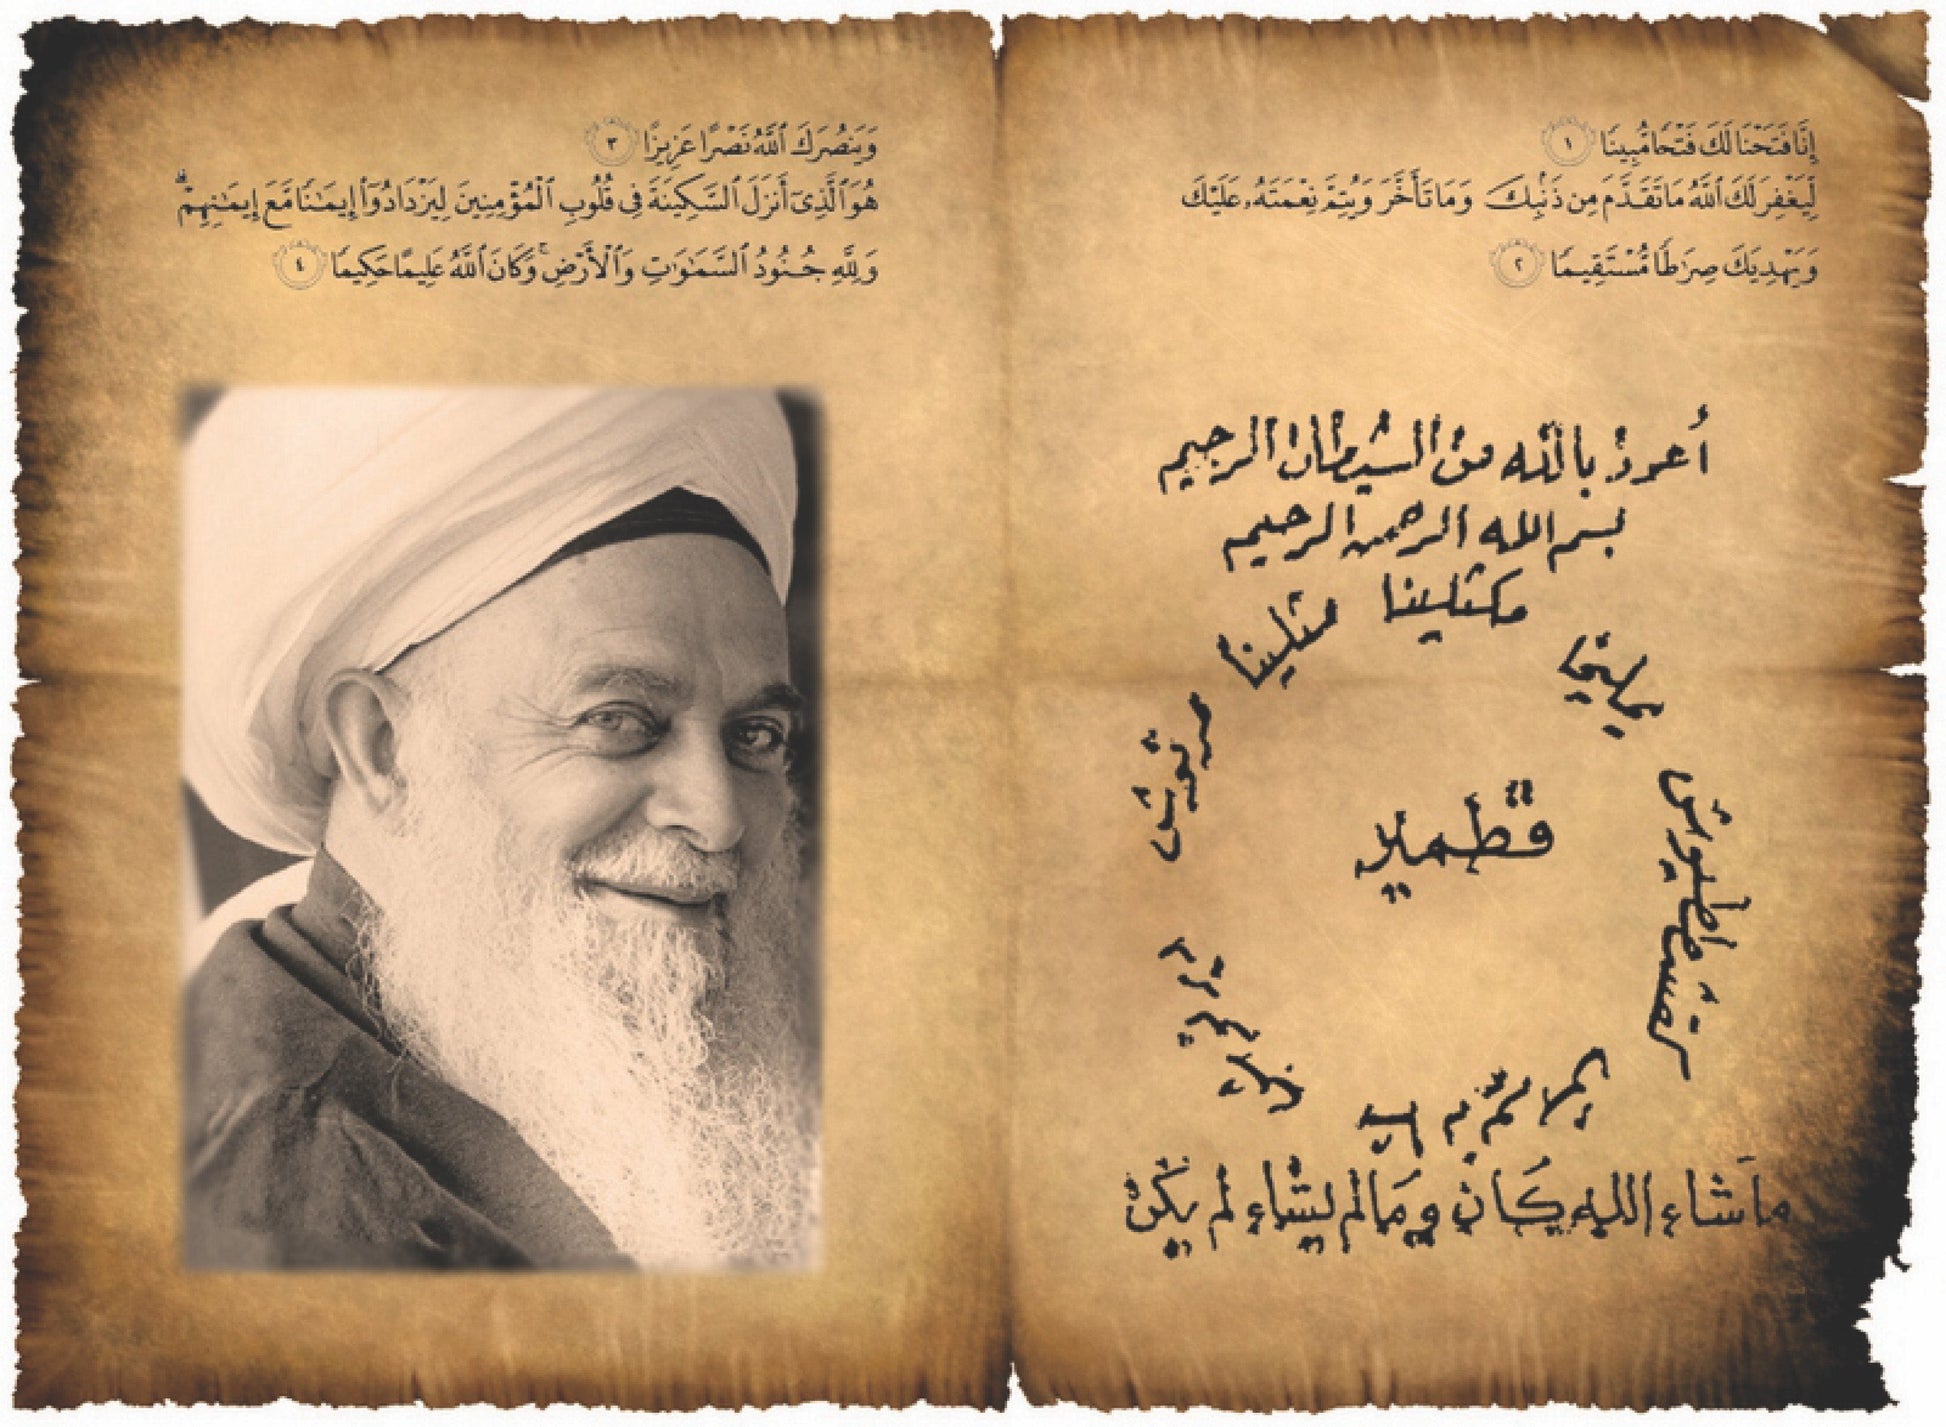 إِنَّا فَتَحْنَا لَكَ فَتْحًا مُّبِينًا ١
لِّيَغْفِرَ لَكَ ٱللَّهُ مَا تَقَدَّمَ مِن ذَنۢبِكَ وَمَا تَأَخَّرَ وَيُتِمَّ نِعْمَتَهُۥ عَلَيْكَ
وَيَهْدِيَكَ صِرَٰطًا مُّسْتَقِيمًا ٢
أعوذ بالله من الشيطان الرجيم
بسم الله الرحمن الرحيم
يمليخا
مكثلينا
مثلينا
مرنوش
قطمير
مَاشاء الله كَان ومَالم يشاء لم يكن
وَيَنصُرَكَ ٱللَّهُ نَصْرًا عَزِيزًا ٣
هُوَ ٱلَّذِىٓ أَنزَلَ ٱلسَّكِينَةَ فِى قُلُوبِ ٱلْمُؤْمِنِينَ لِيَزْدَادُوٓا۟ إِيمَٰنًا مَّعَ إِيمَٰنِهِمْ ۗ
وَلِلَّهِ جُنُودُ ٱلسَّمَٰوَٰتِ وَٱلْأَرْضِ ۚ وَكَانَ ٱللَّهُ عَلِيمًا حَكِيمًا ٤